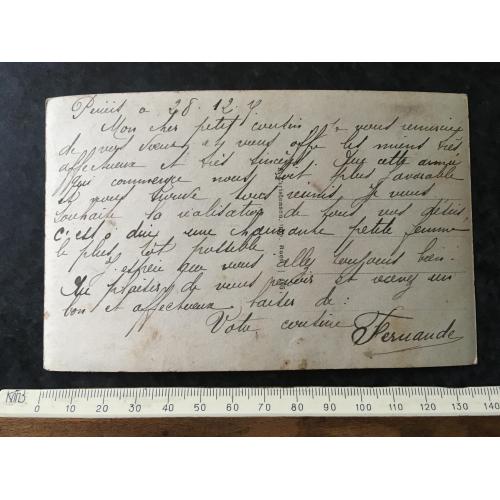 28. 12.
Mon cher petit cousin je vous remercie
de vos voeux et vous offre les miens très
affectueux et très sincères. Que cette année
qui commence nous soit plus favorable
et nous trouve tous réunis. Je vous
souhaite la réalisation de tous vos désirs
c'est à dire une charmante petite femme
le plus tôt possible.
J'espère que vous allez toujours bien.
Au plaisir de vous revoir et recevez un
bon et affectueux baiser de :
Votre cousine Fernande
0 10 20 30 40 50 60 70 80 90 100 110 120 130 140